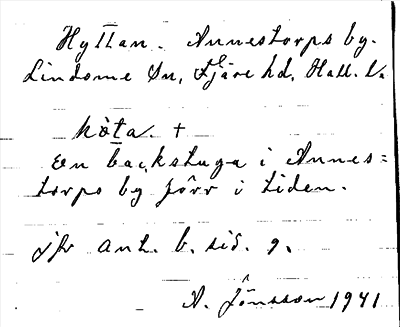 Hyttan. Annestorps by.
Lindome Sn, Fjäre hd, Hall. l.
hòta. +
En backstuga i Annes=
torps by förr i tiden.
jfr ant. b. sid. 9.
A. Jönsson 1941